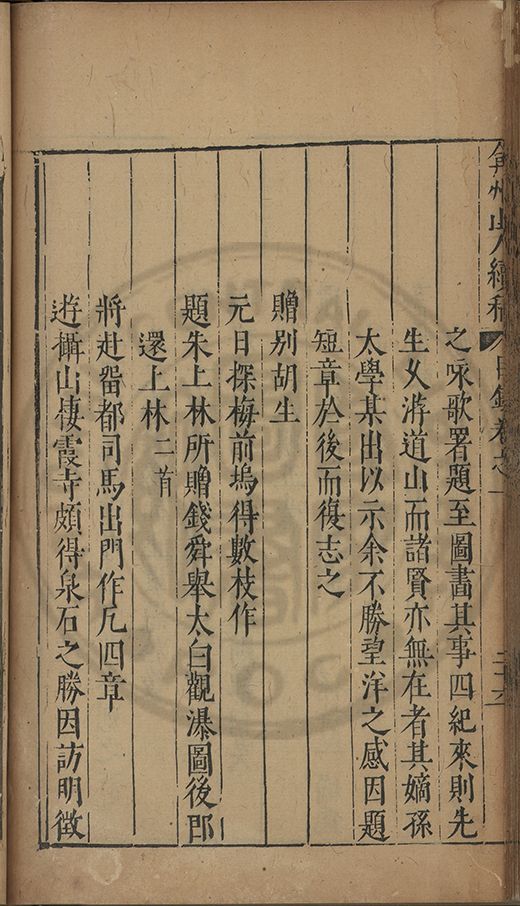 弇州山人續稿 目錄卷之一
之咏歌署題至圖畫其事四紀來則先
生久游道山而諸賢亦無在者其嫡孫
太學某出以示余不勝望洋之感因題
短章於後而復志之
贈别胡生
元日探梅前塢得數枝作
題朱上林所贈錢舜舉太白觀瀑圖後即
還上林二首
將赴留都司馬出門作凡四章
遊攝山棲霞寺頗得泉石之勝因訪明徵